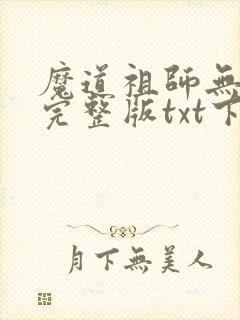 魔道祖師無
完整版txt下
月下無美人